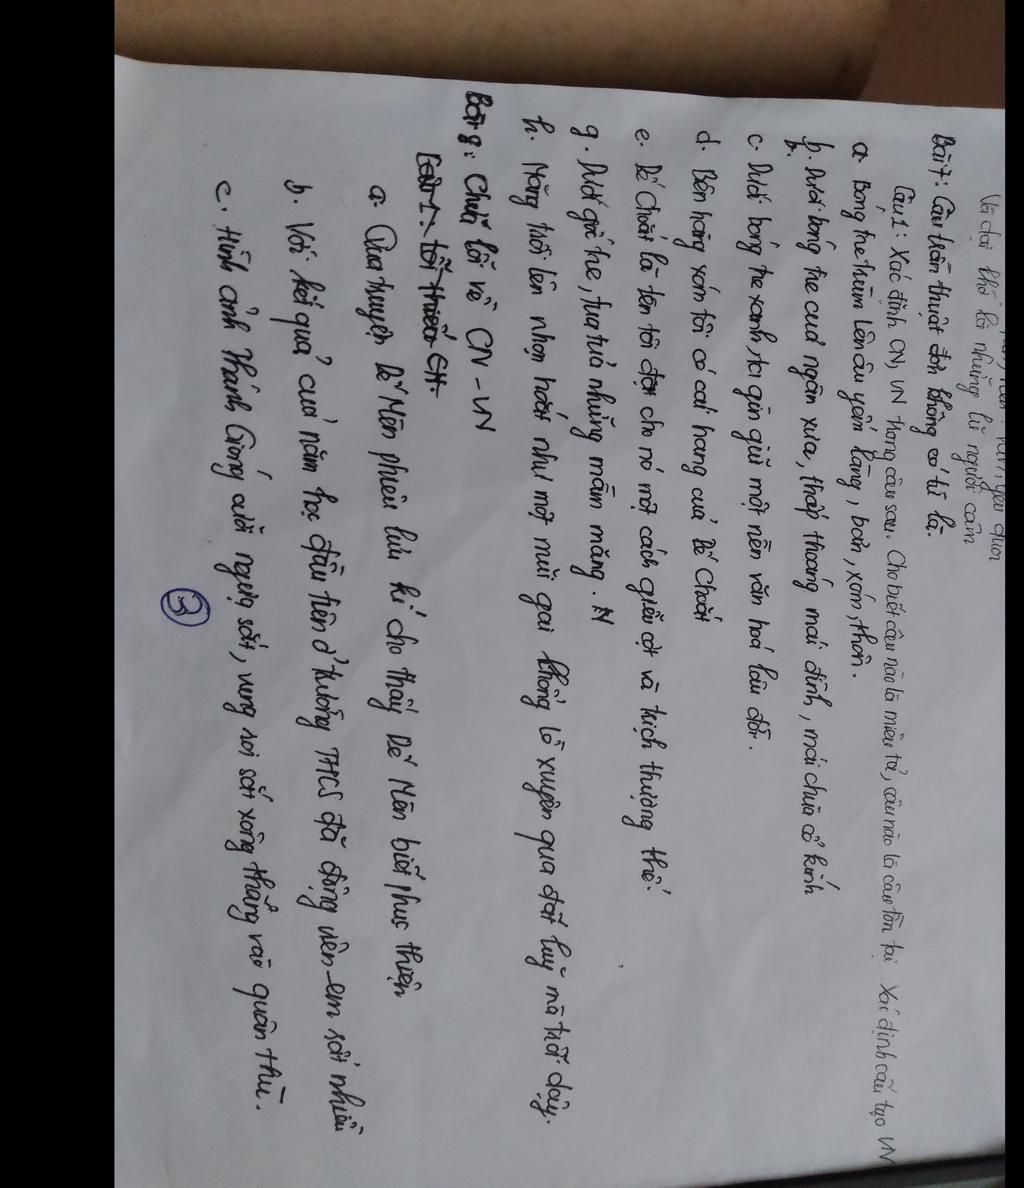 Và dại khờ là những lũ người câm
Bài 7: Câu trần thuật đơn không có từ là.
Câu 1: Xác định CN, VN trong câu sau. Cho biết câu nào là miêu tả, câu nào là câu tồn tại. Xác định cấu tạo VN
a. Bóng tre trùm lên âu yếm làng, bản, xóm, thôn.
b. Dưới bóng tre của ngàn xưa, thấp thoáng mái đình, mái chùa cổ kính
c. Dưới bóng tre xanh, ta gìn giữ một nền văn hoá lâu đời.
d. Bên hàng xóm tôi có cái hang của Dế Choắt
e. Dế Choắt là tên tôi đặt cho nó một cách giễu cợt và trịch thượng thế.
g. Dưới gốc tre, tua tủa những mầm măng. N
h. Măng trồi lên nhọn hoắt như một mũi gai khổng lồ xuyên qua đất luỹ mà trỗi dậy.
Bài 8: Chữa lỗi về CN - VN
Câu 1: lỗi thiếu CN.
a. Qua truyện Dế Mèn phiêu lưu kí cho thấy Dế Mèn biết phục thiện
b. Với kết quả của năm học đầu tiên ở trường THCS đã động viên em rất nhiều
c. Hình ảnh Thánh Gióng cưỡi ngựa sắt, vung roi sắt xông thẳng vào quân thù.
3